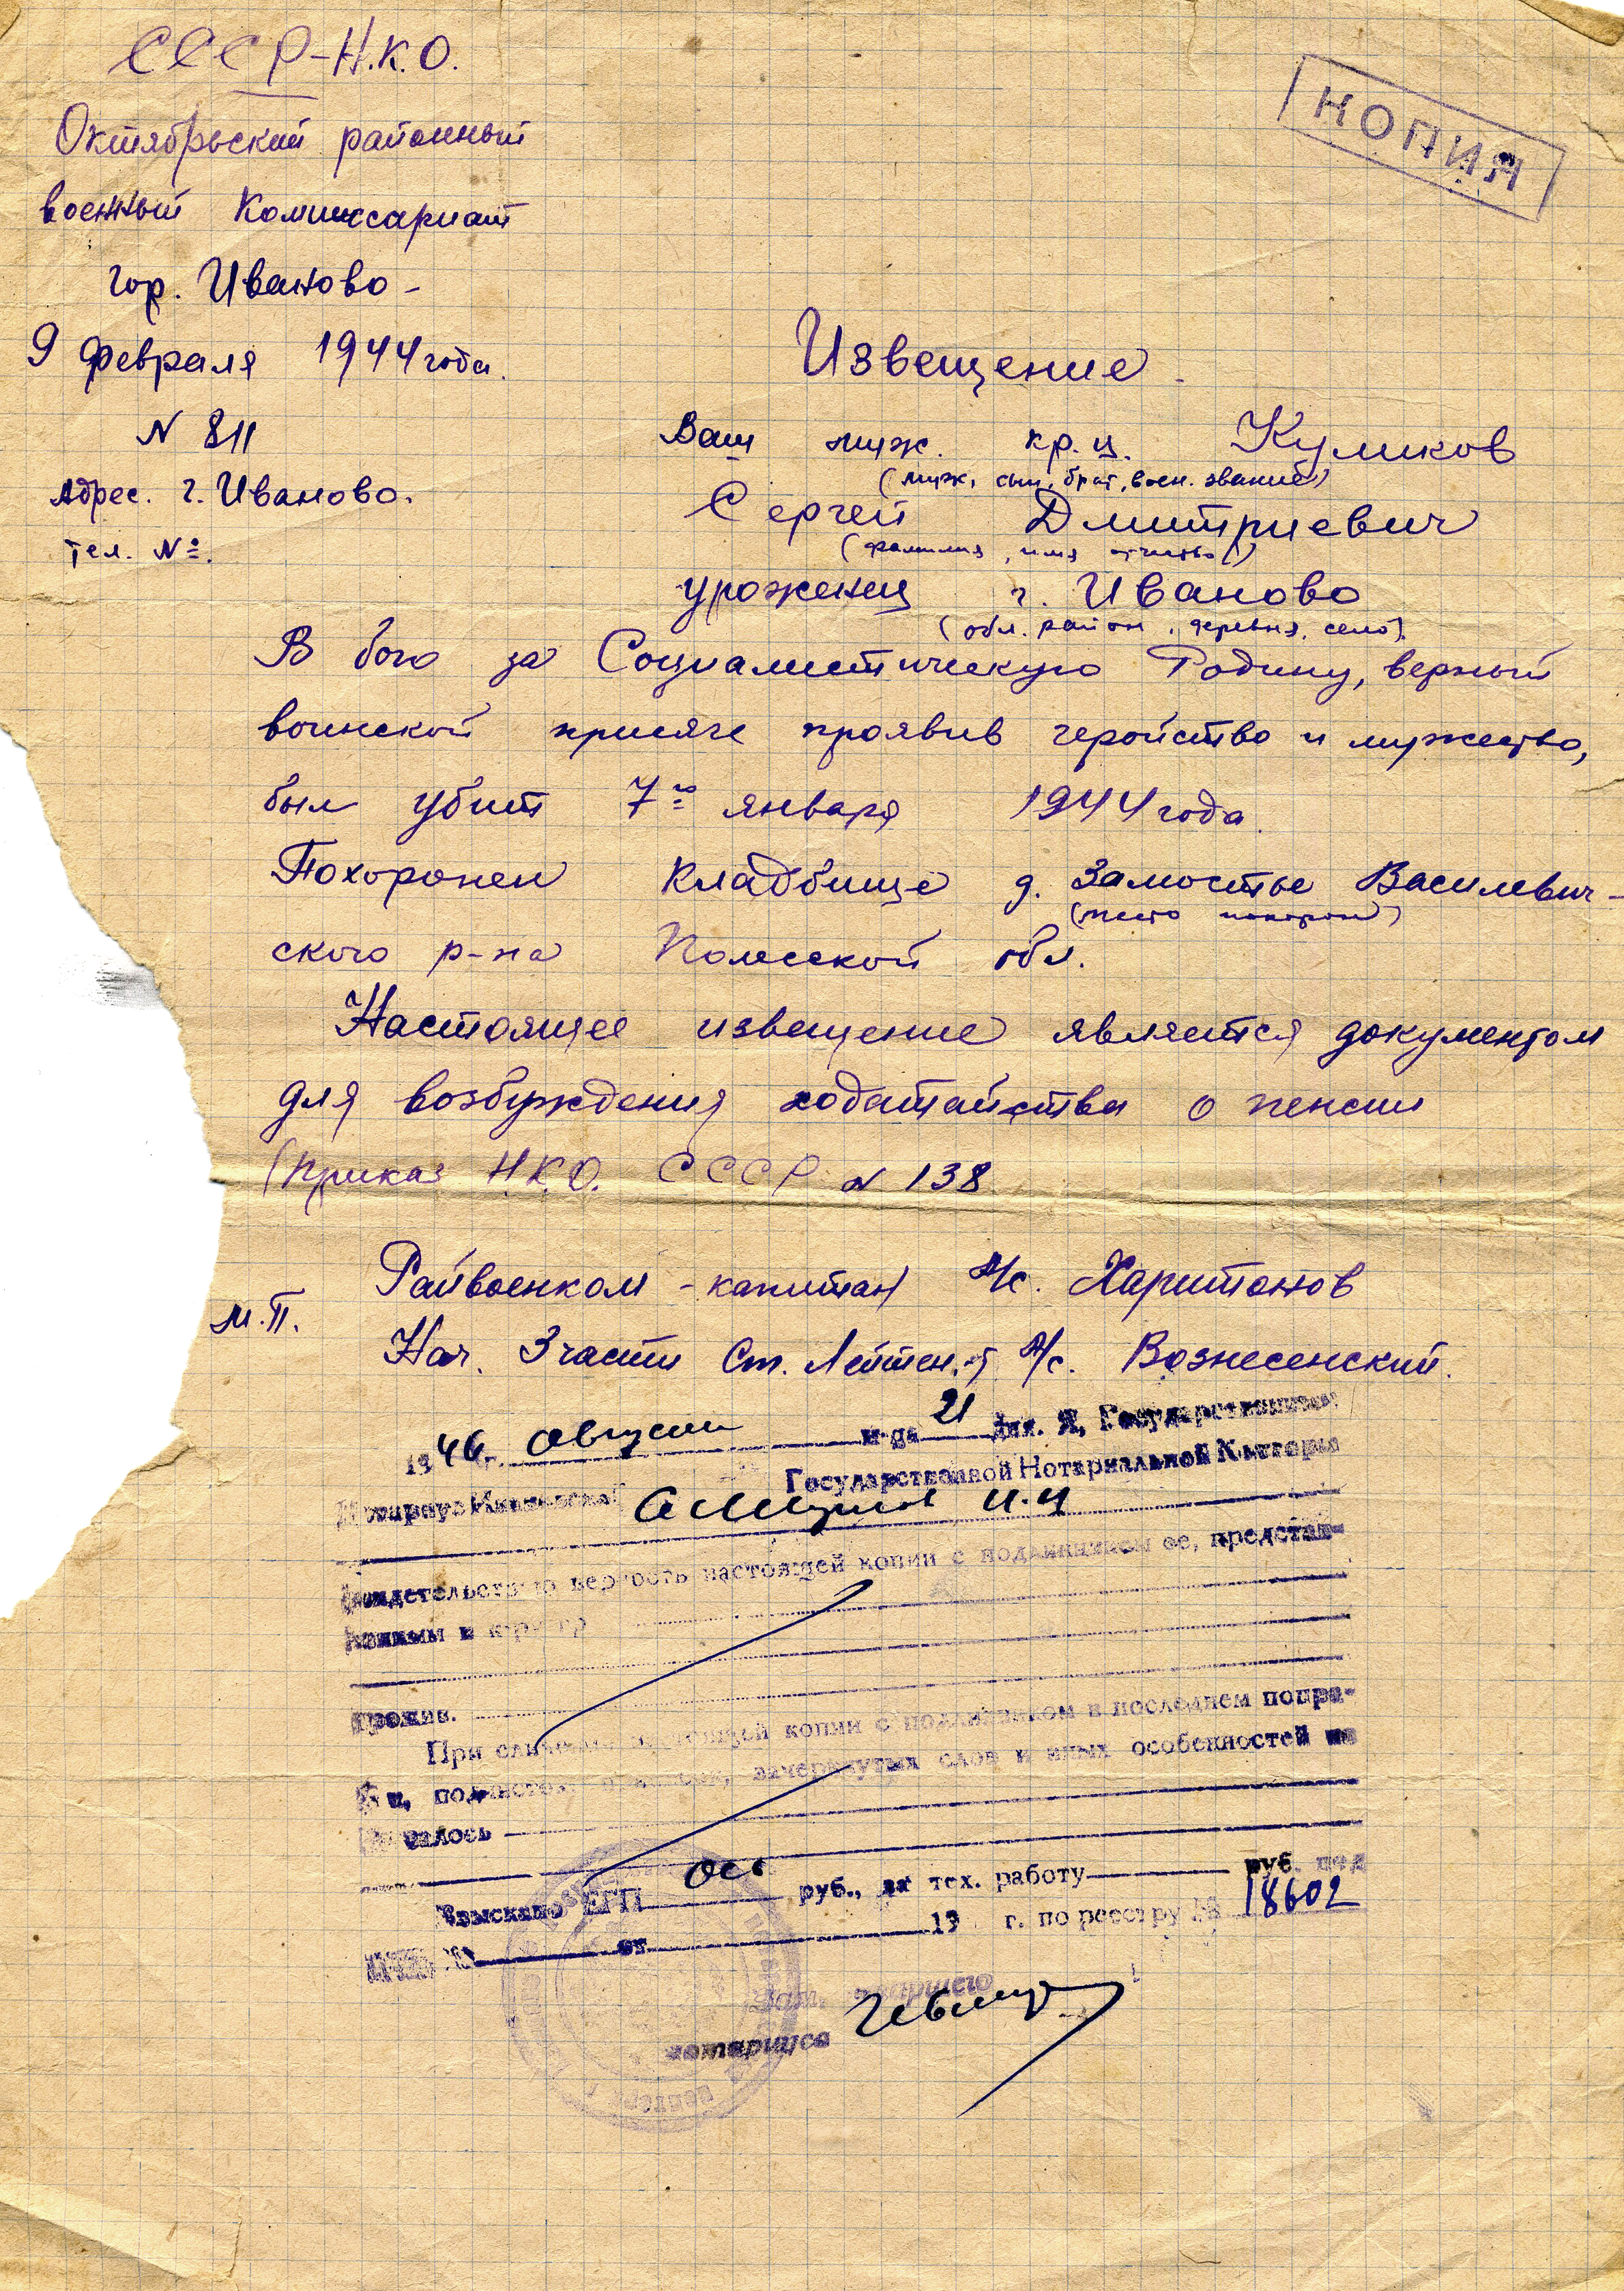 СССР-Н.К.О.
КОПИЯ
Октябрьский районный
военный Комиссариат
гор. Иваново -
9 февраля 1944 года.
Извещение
N 811
Ваш муж. кр.ц. Куликов
(муж, сын, брат, воен. звание)
Адрес. г. Иваново.
Сергей Дмитриевич
(фамилия, имя отчество)
тел. №.
уроженец г. Иваново
(обл. район, деревня, село).
В бою за Социалистическую Родину, верный
воинской присяге проявив геройство и мужество,
был убит 7го января 1944 года.
Похоронен кладбище д. Замостье Василевич-
(место похорон)
ского р-на Полесской обл.
Настоящее извещение является документом
для возбуждения ходатайства о пенсии
(Приказ НКО. СССР N 138
Райвоенком - капитан А/с. Харитонов
М.П.
Нач. 3 части Ст. Лейтен-т А/с. Вознесенский.
1946 г. Август м-ца 21 дня. Я, Государственный
Государственной Нотариальной Конторы
свидетельствую верность настоящей копии с подлинником ее, представ-
прожив.
При сличении настоящей копии с подлинником в последнем попра-
зачеркнутых слов и иных особенностей не
залось
Взыскано ЕГП руб., за тех. работу руб. под
от 19 г. по реестру № 18602
нотариуса